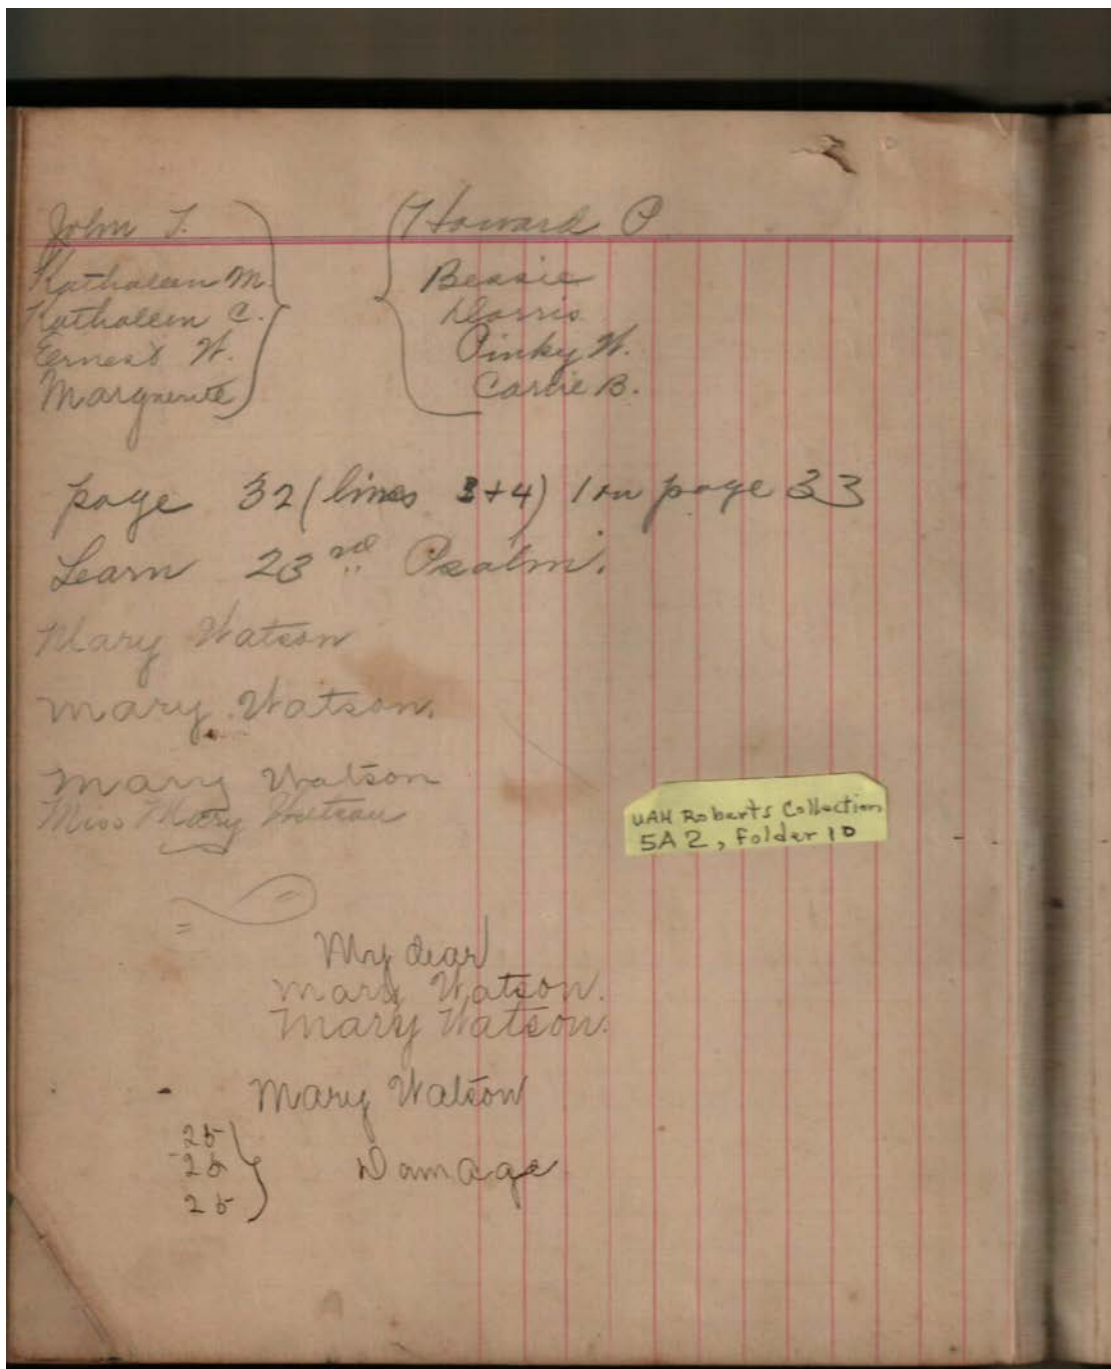 John T.
Kathaleen M.
Kathaleen C.
Ernest W.
Marguerite
Howard P
Bessie
Dorris
Pinky W.
Carlie B.
page 32 (lines 3+4) 1 on page 33
Learn 23rd Psalm.
Mary Watson
Mary Watson.
Mary Watson
Miss Mary Watson
UAH Roberts Collection
5A2, Folder 10
My dear
Mary Watson.
Mary Watson.
Mary Watson
25
25
25
Damage